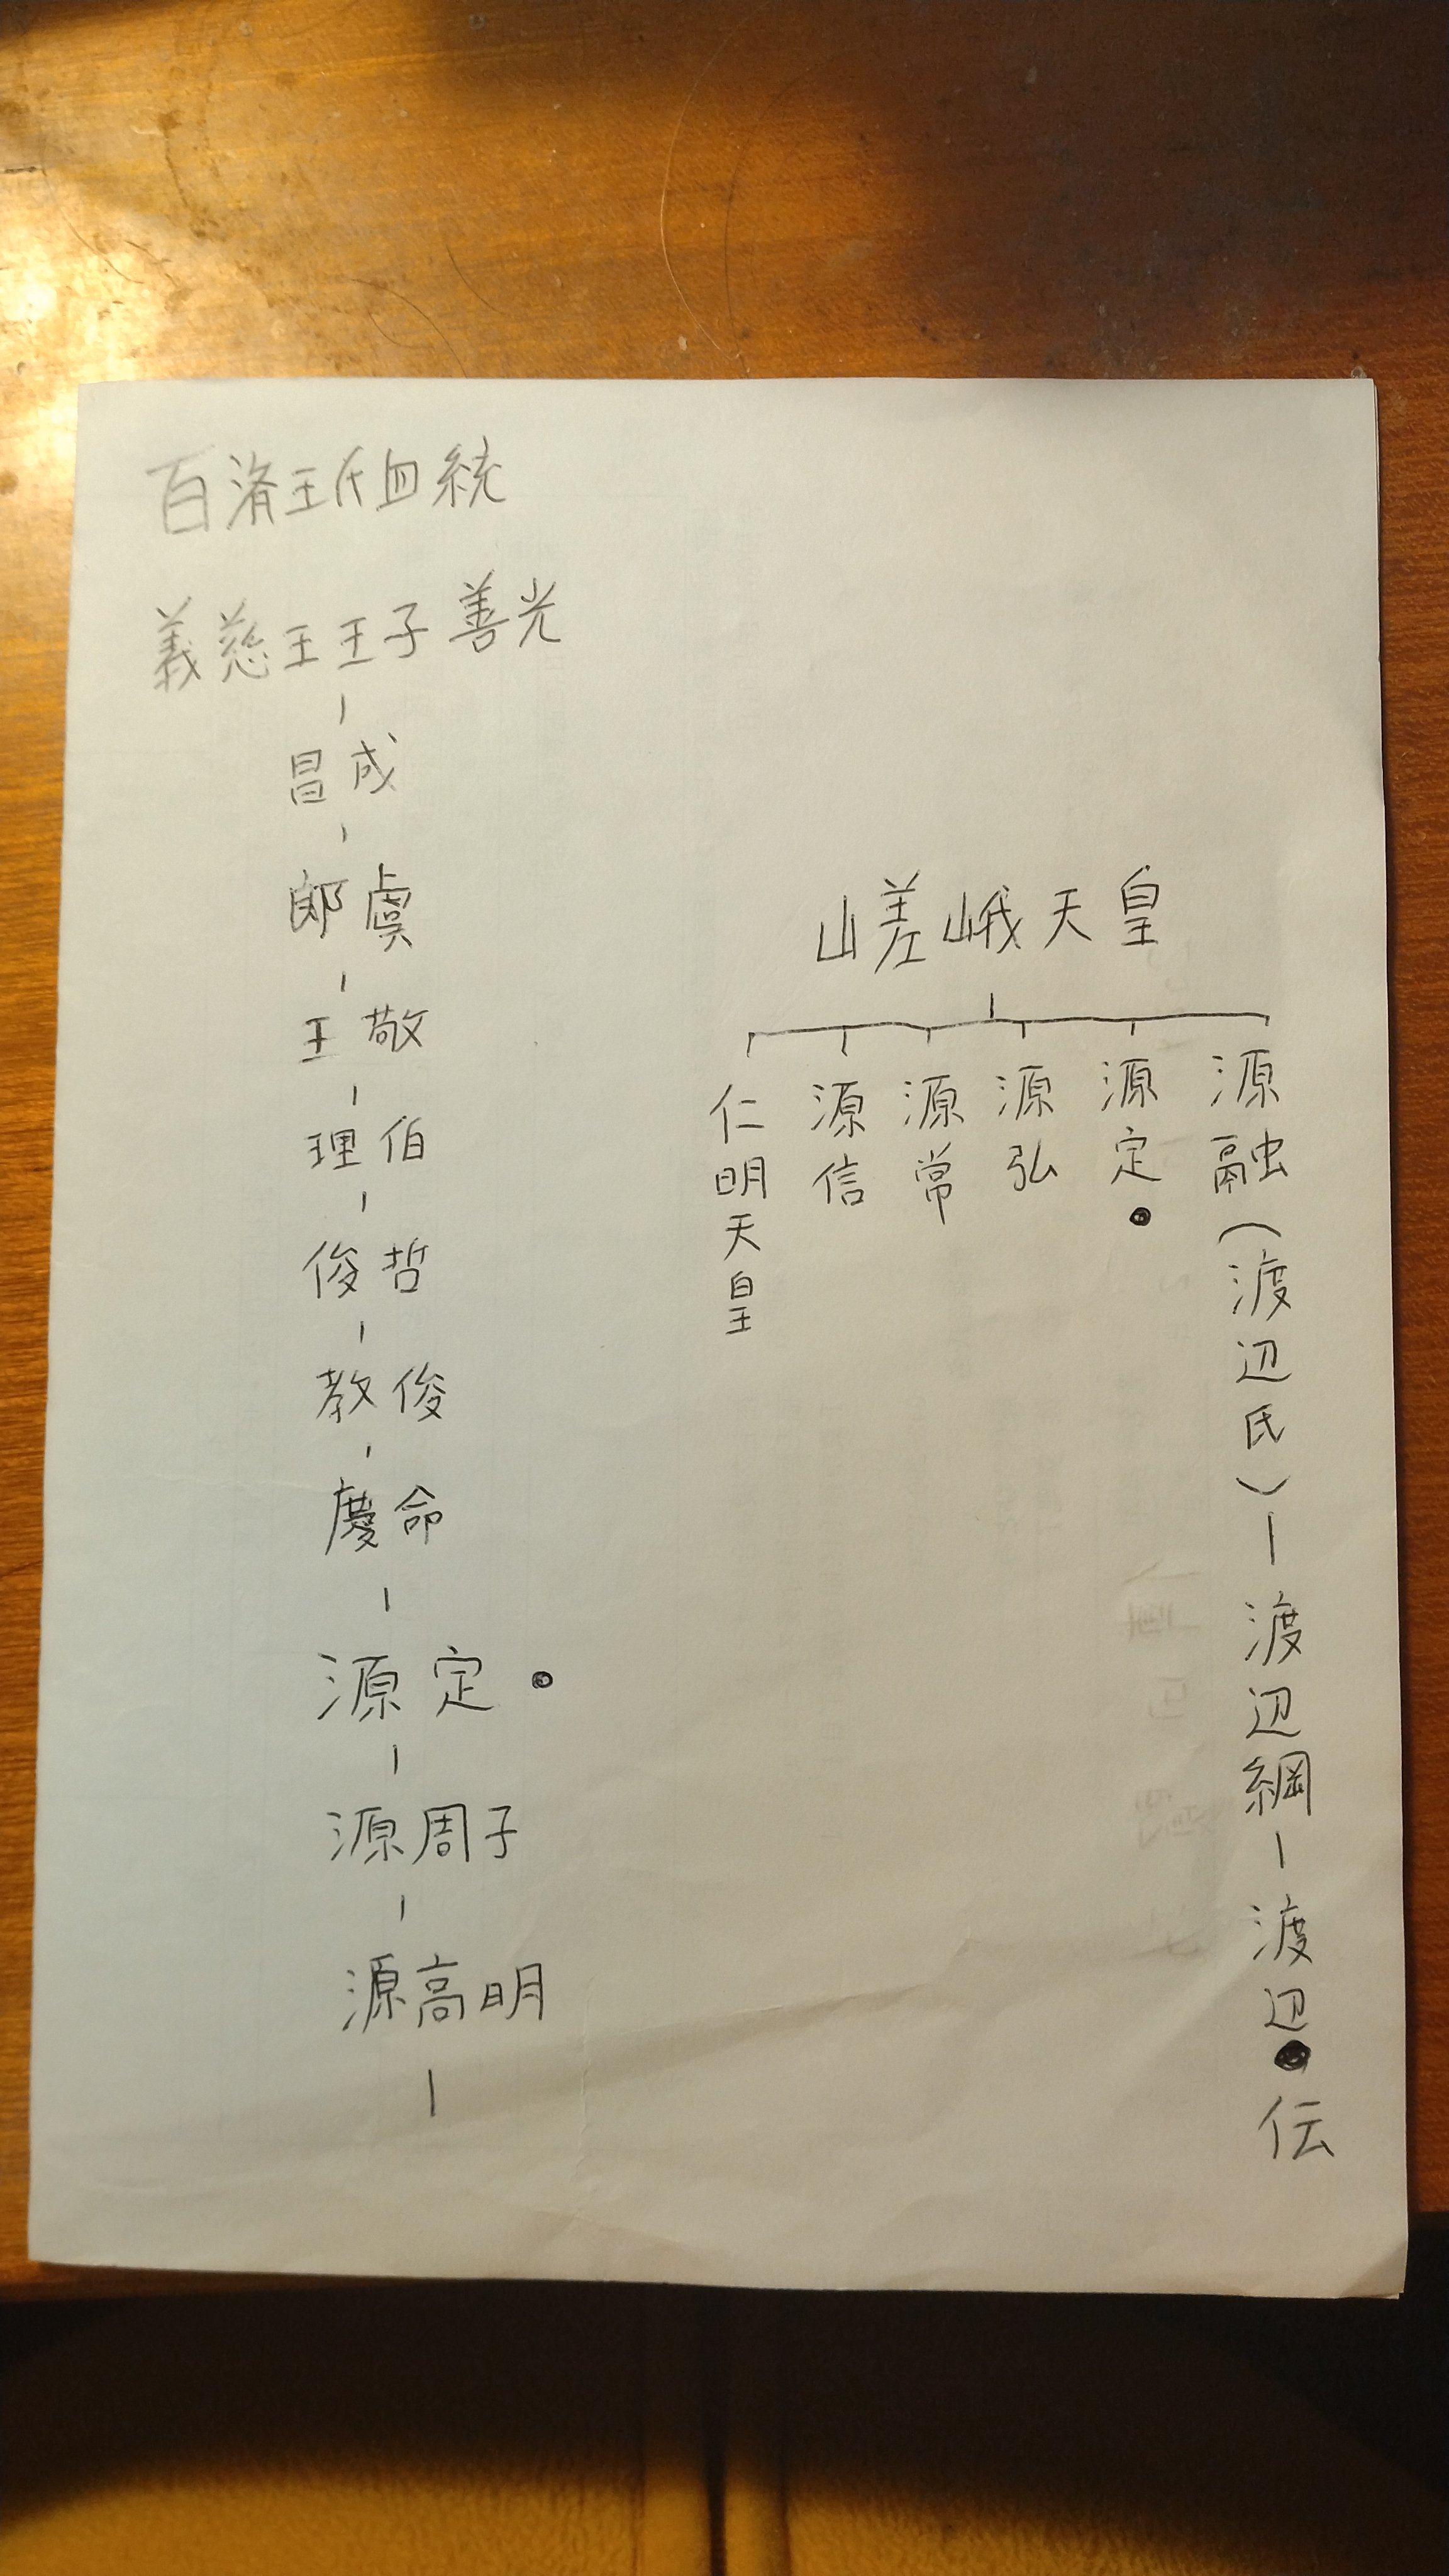 百済王氏血統
義慈王王子善光
昌成
郎虞
王敬
理伯
俊哲
教俊
慶命
源定●
源周子
源高明
嵯峨天皇
仁明天皇
源信
源常
源弘
源定●
源融(渡辺氏)ー渡辺綱ー渡辺●伝